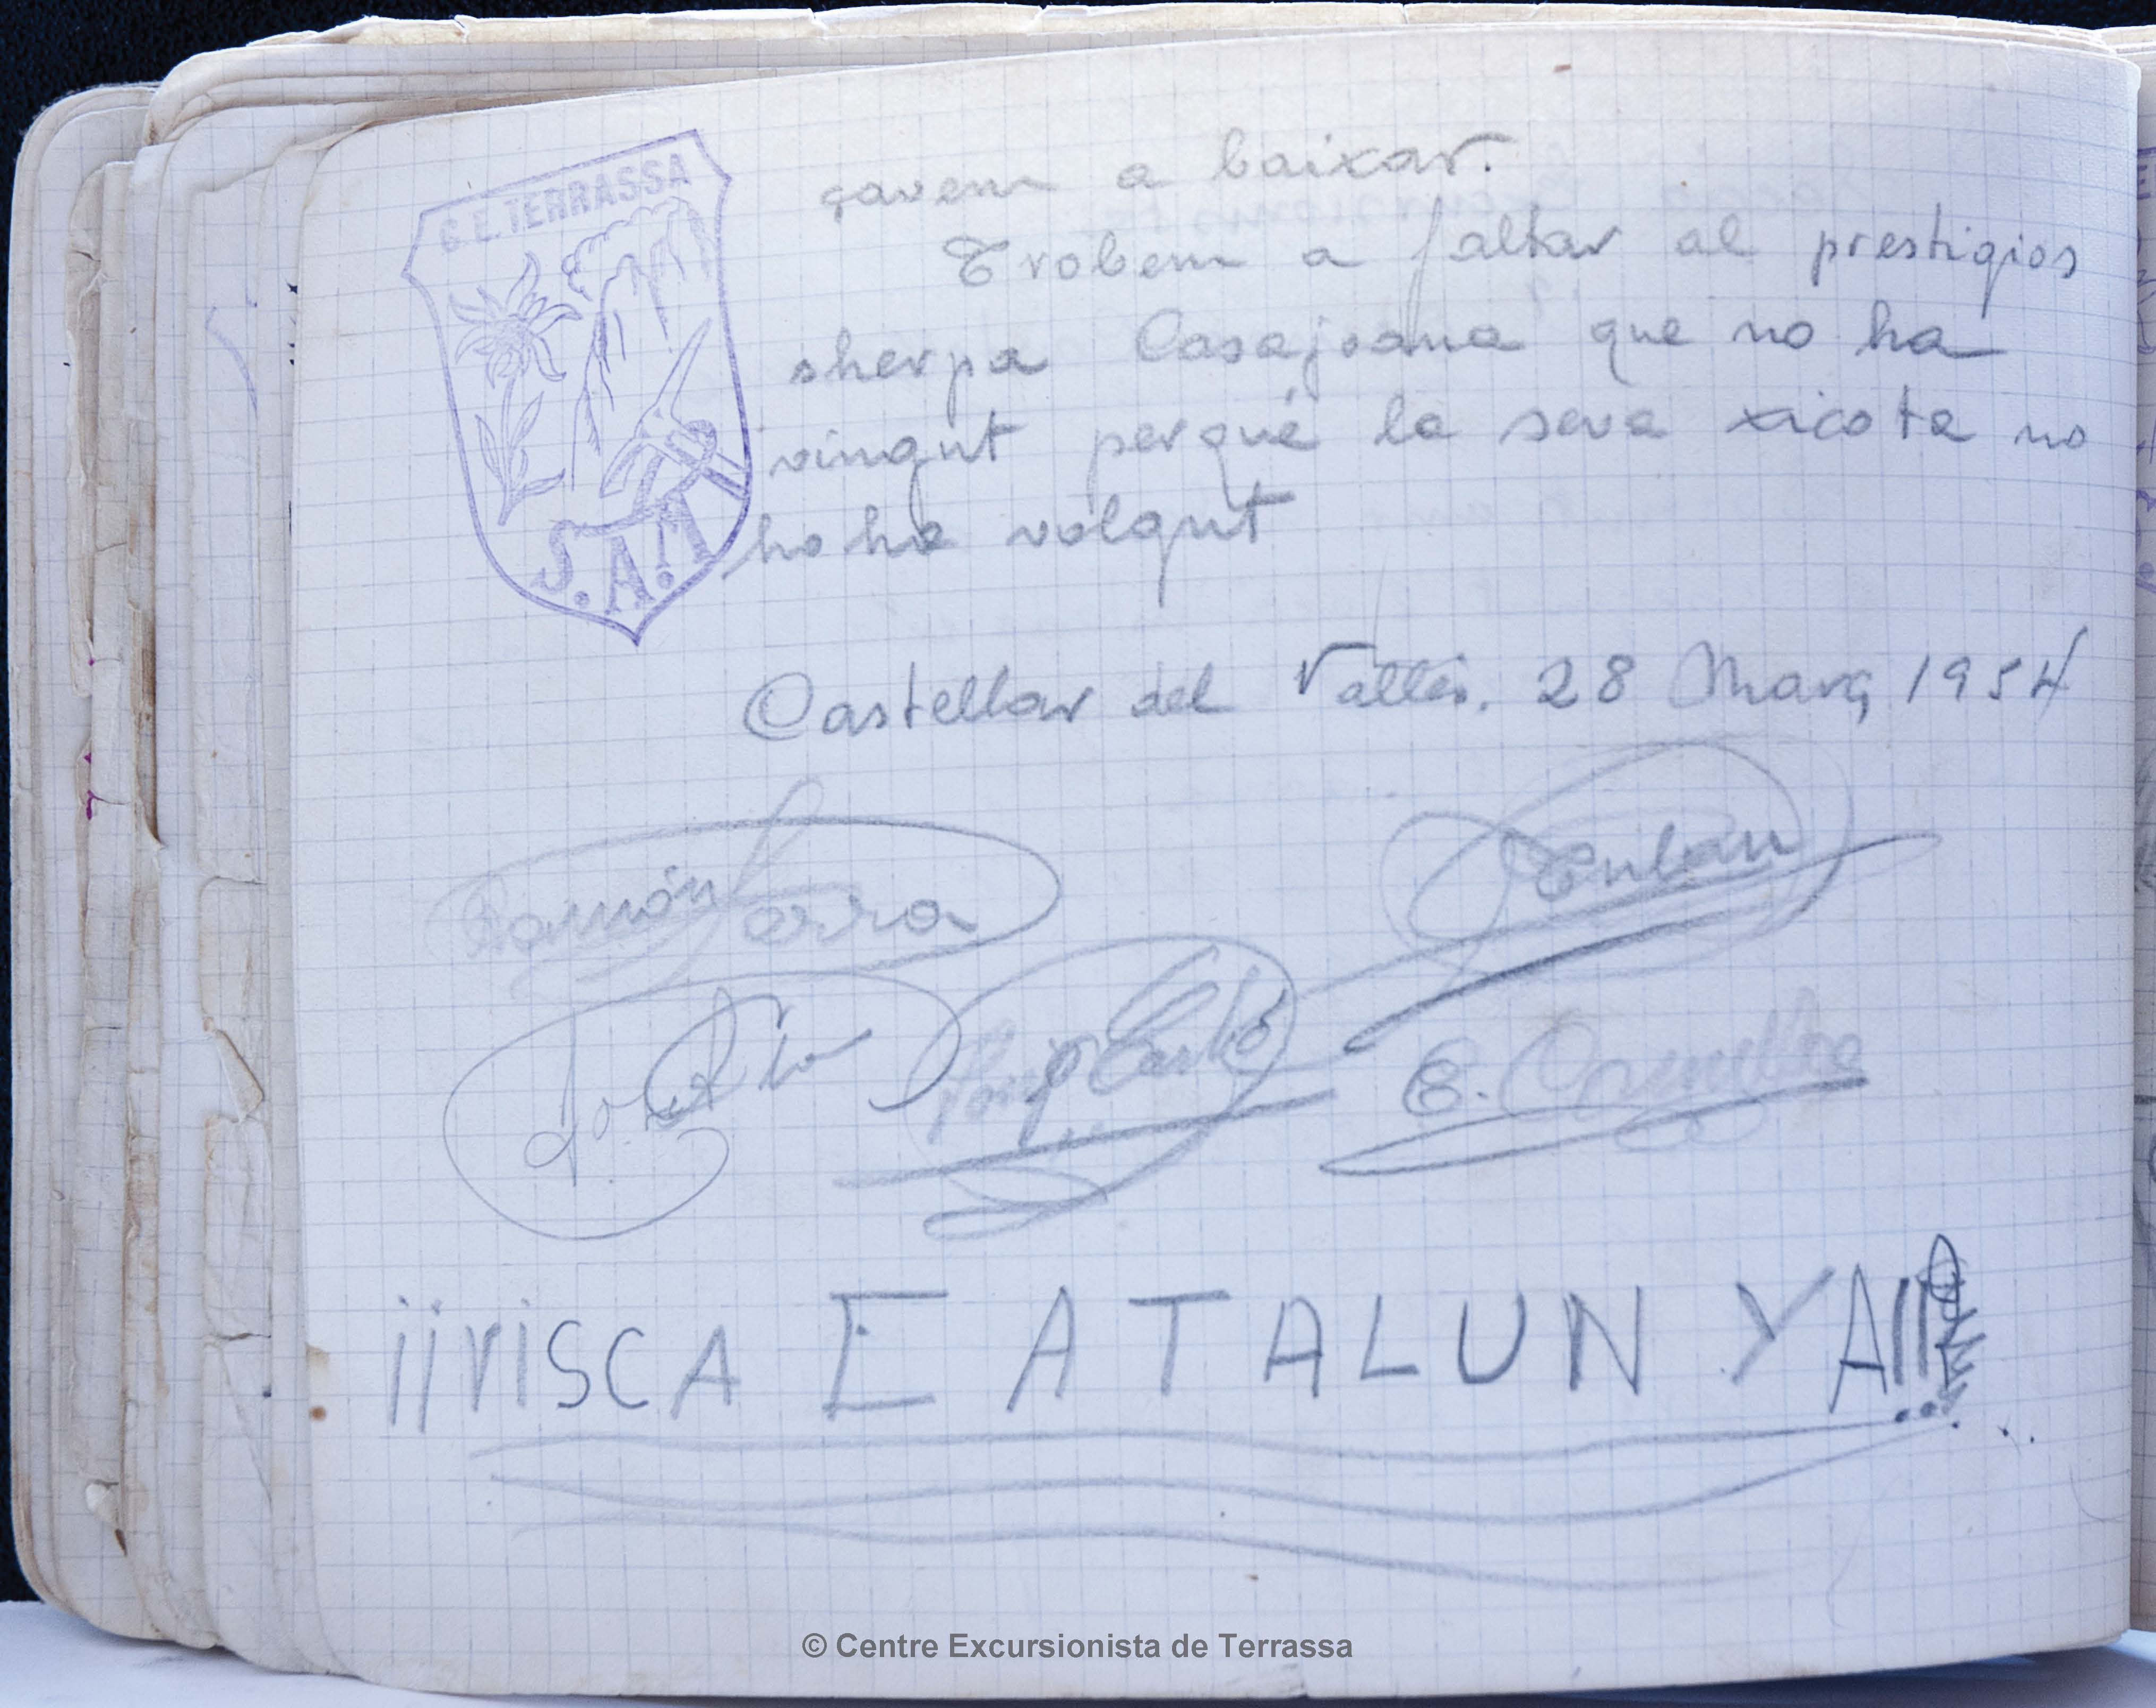 C.E. TERRASSA
S.A.
çavem a baixar.
Trobem a faltar al prestigios
sherpa Casajoana que no ha
vingut perqué la seva xicota no
ho ha volgut
Castellar del Vallés. 28 Març 1954
Ramón Sorra
E.
¡¡VISCA CATALUNYA!!
© Centre Excursionista de Terrassa